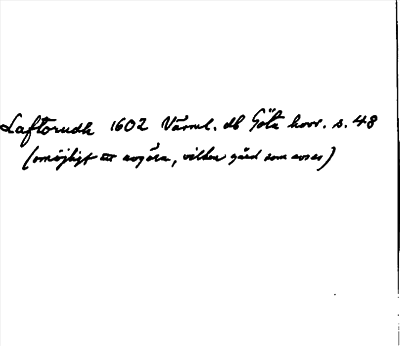 Laftorudh 1602 Värml. db Göta hovr. s. 48
(omöjligt att avgöra, vilken gård som avses)